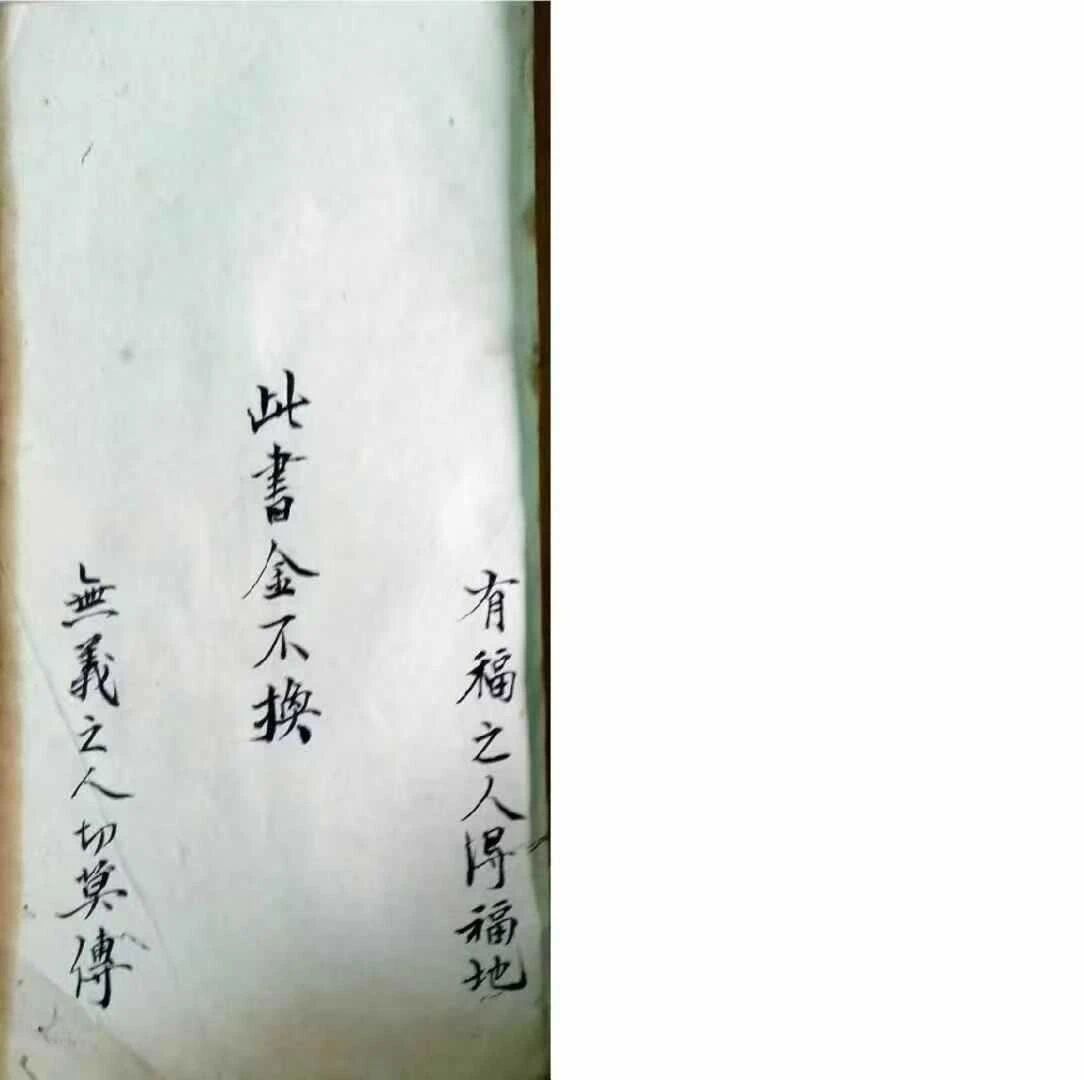 有福之人得福地
此書金不換
無義之人切莫傳